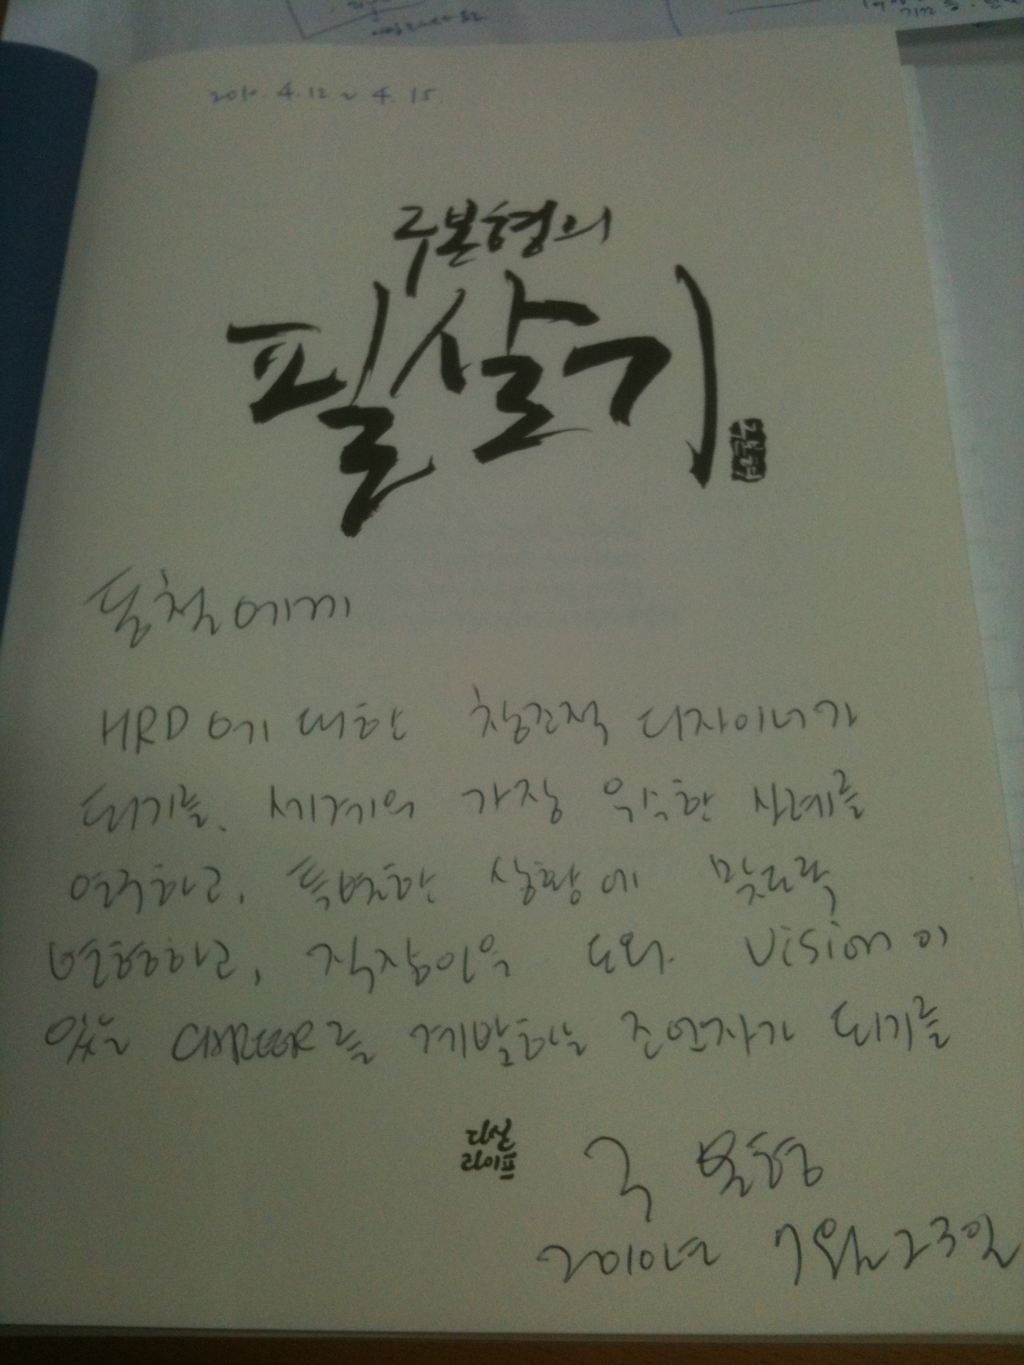 2010. 4. 12 ~ 4. 15.
구본형의
필살기
동철에게
HRD에 대한 창조적 디자이너가
되기를. 세계의 가장 우수한 사례를
연구하고, 특별한 상황에 맞도록
변형하고, 직장인을 도와 Vision이
있는 CAREER를 계발하는 조언자가 되기를
다산
라이프
구본형
2010년 7월 23일